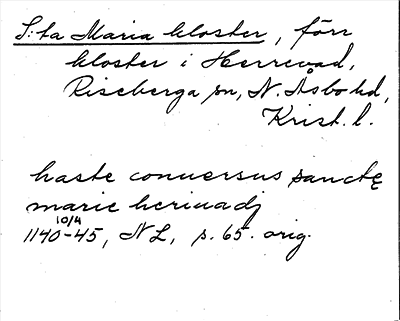 S:ta Maria kloster, förr
kloster i Herrevad,
Riseberga sn, N. Åsbo hd,
Krist. l.
haste conuersus sanctę
marie heriuadj
10/4
1140-45, NL, s. 65. orig.